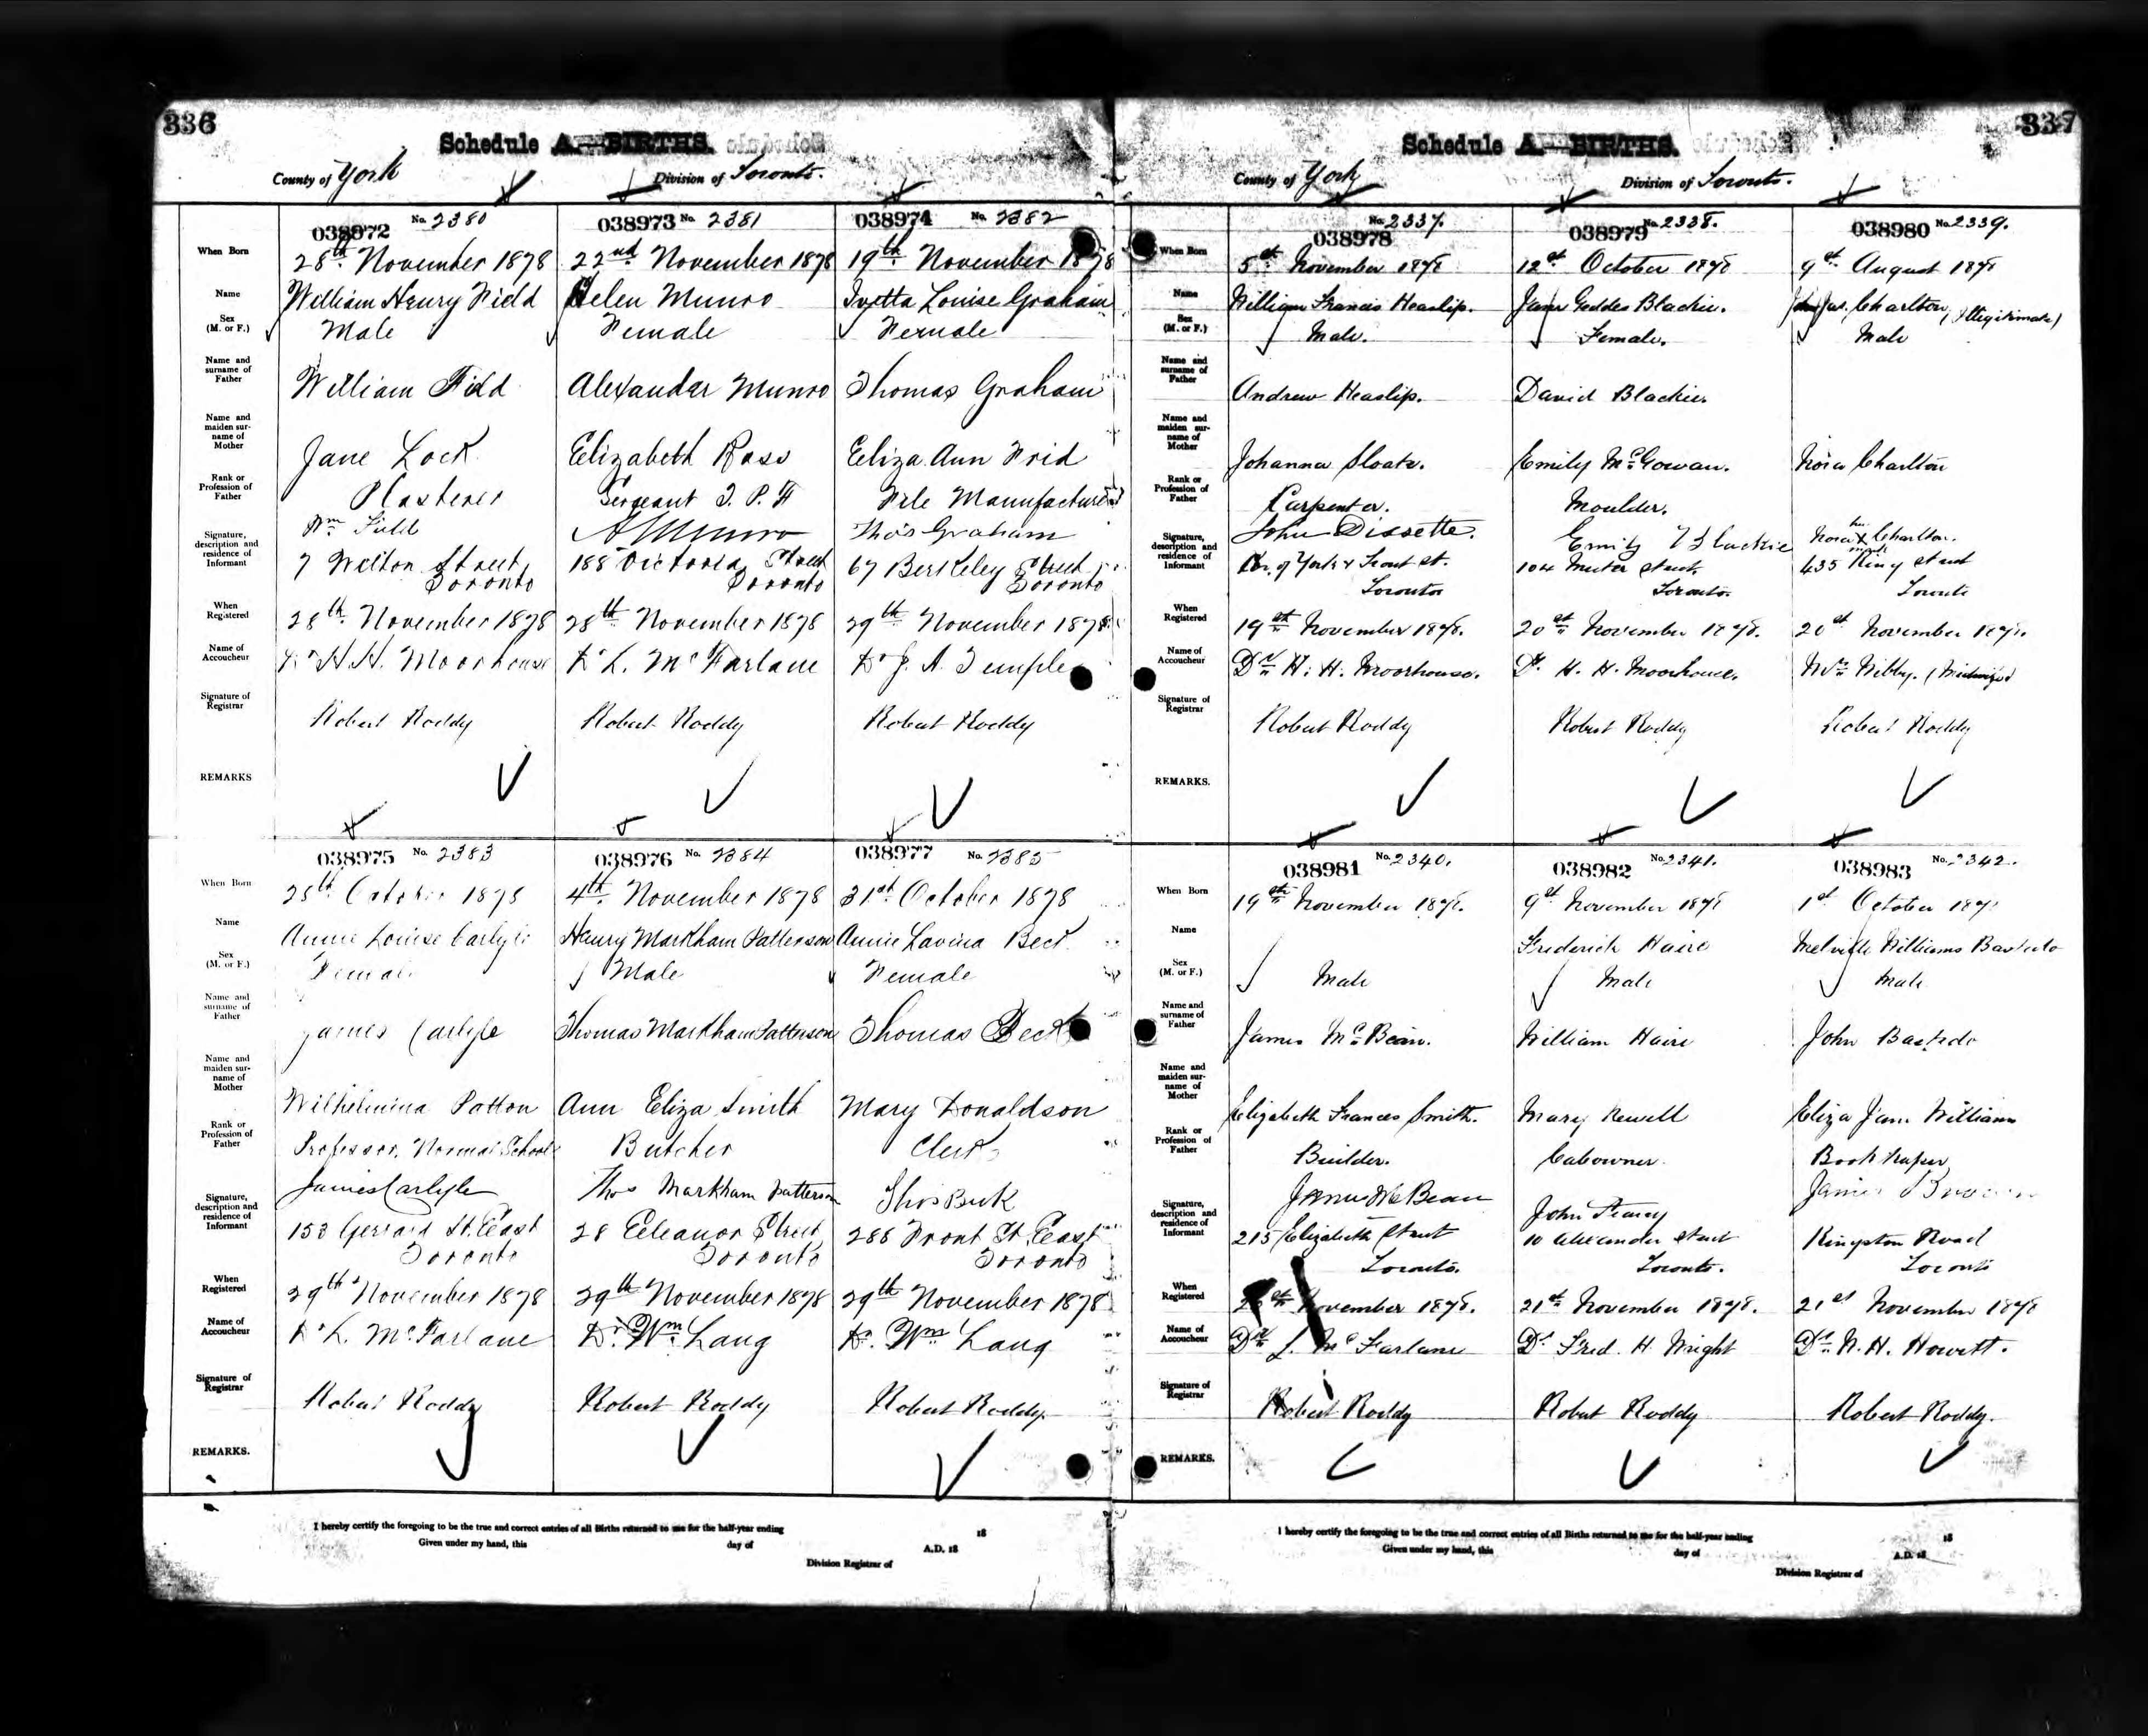 336
Schedule A.—BIRTHS.
County of York
Division of Toronto.
038972 No. 2380
038973 No. 2381
038974 No. 2382
When Born
28th November 1878
22nd November 1878
19th November 1878
Name
William Henry Field
Helen Munro
Ivetta Louise Graham
Sex
(M. or F.)
Male
Female
Female
Name and
surname of
Father
William Field
Alexander Munro
Thomas Graham
Name and
maiden sur-
name of
Mother
Jane Lock
Elizabeth Ross
Eliza Ann Frid
Rank or
Profession of
Father
Plasterer
Sergeant T. P. F
File Manufacturer
Signature,
description and
residence of
Informant
Wm Field
A Munro
Thos Graham
7 Wilton Street
Toronto
188 Victoria Street
Toronto
67 Berkeley Street
Toronto
When
Registered
28th November 1878
28th November 1878
29th November 1878
Name of
Accoucheur
Dr H. H. Moorhouse
Dr L. McFarlane
Dr J. A. Temple
Signature of
Registrar
Robert Roddy
Robert Roddy
Robert Roddy
REMARKS
038975 No. 2383
038976 No. 2384
038977 No. 2385
When Born
25th October 1878
4th November 1878
31st October 1878
Name
Annie Louise Carlyle
Henry Markham Patterson
Annie Lavina Beck
Sex
(M. or F.)
Female
Male
Female
Name and
surname of
Father
James Carlyle
Thomas Markham Patterson
Thomas Beck
Name and
maiden sur-
name of
Mother
Wilhelmina Patton
Ann Eliza Smith
Mary Donaldson
Rank or
Profession of
Father
Professor, Normal School
Butcher
Clerk
Signature,
description and
residence of
Informant
James Carlyle
Thos Markham Patterson
Thos Beck
153 Gerrard St. East
Toronto
28 Eeleanor Street
Toronto
288 Front St. East
Toronto
When
Registered
29th November 1878
29th November 1878
29th November 1878
Name of
Accoucheur
Dr L. McFarlane
Dr. Wm. Lang
Dr. Wm. Lang
Signature of
Registrar
Robert Roddy
Robert Roddy
Robert Roddy.
REMARKS.
I hereby certify the foregoing to be the true and correct entries of all Births returned to me for the half-year ending 18
Given under my hand, this day of A.D. 18
Division Registrar of
337
Schedule A.—BIRTHS.
County of York
Division of Toronto.
038978 No. 2337.
038979 No. 2338.
038980 No. 2339.
When Born
5th November 1878
12th October 1878
9th August 1878
Name
William Francis Heaslip.
Jane Geddes Blackie.
Jas. Charlton, (Illegitimate)
Sex
(M. or F.)
Male.
Female.
Male
Name and
surname of
Father
Andrew Heaslip.
David Blackie.
Name and
maiden sur-
name of
Mother
Johanna Sloate.
Emily McGowan.
Nora Charlton
Rank or
Profession of
Father
Carpenter.
Moulder.
Signature,
description and
residence of
Informant
John Dissette.
Emily Blackie
Nora her X mark Charlton.
Cor. of York & Front St.
Toronto
104 Muter street
Toronto.
435 King street
Toronto
When
Registered
19th November 1878.
20th November 1878.
20th November 1878.
Name of
Accoucheur
Dr H. H. Moorhouse.
Dr. H. H. Moorhouse.
Mrs Bibby. (Midwife)
Signature of
Registrar
Robert Roddy
Robert Roddy
Robert Roddy
REMARKS.
038981 No. 2340.
038982 No. 2341.
038983 No. 2342.
When Born
19th November 1878.
9th November 1878
1st October 1878
Name
Frederick Haire
Melville Williams Bastedo
Sex
(M. or F.)
Male
Male
Male
Name and
surname of
Father
James McBean.
William Haire
John Bastedo
Name and
maiden sur-
name of
Mother
Elizabeth Frances Smith.
Mary Rewell
Eliza Jane Williams
Rank or
Profession of
Father
Builder.
Cabowner.
Bookkeeper
Signature,
description and
residence of
Informant
James McBean
John
James Brown
215 Elizabeth Street
Toronto.
10 Alexander street
Toronto.
Kingston Road
Toronto
When
Registered
November 1878.
21st November 1878.
21st November 1878
Name of
Accoucheur
Dr L. McFarlane
Dr Fred. H. Wright
Dr. N. H. Howett.
Signature of
Registrar
Robert Roddy
Robert Roddy
Robert Roddy.
REMARKS.
I hereby certify the foregoing to be the true and correct entries of all Births returned to me for the half-year ending 18
Given under my hand, this day of A.D. 18
Division Registrar of